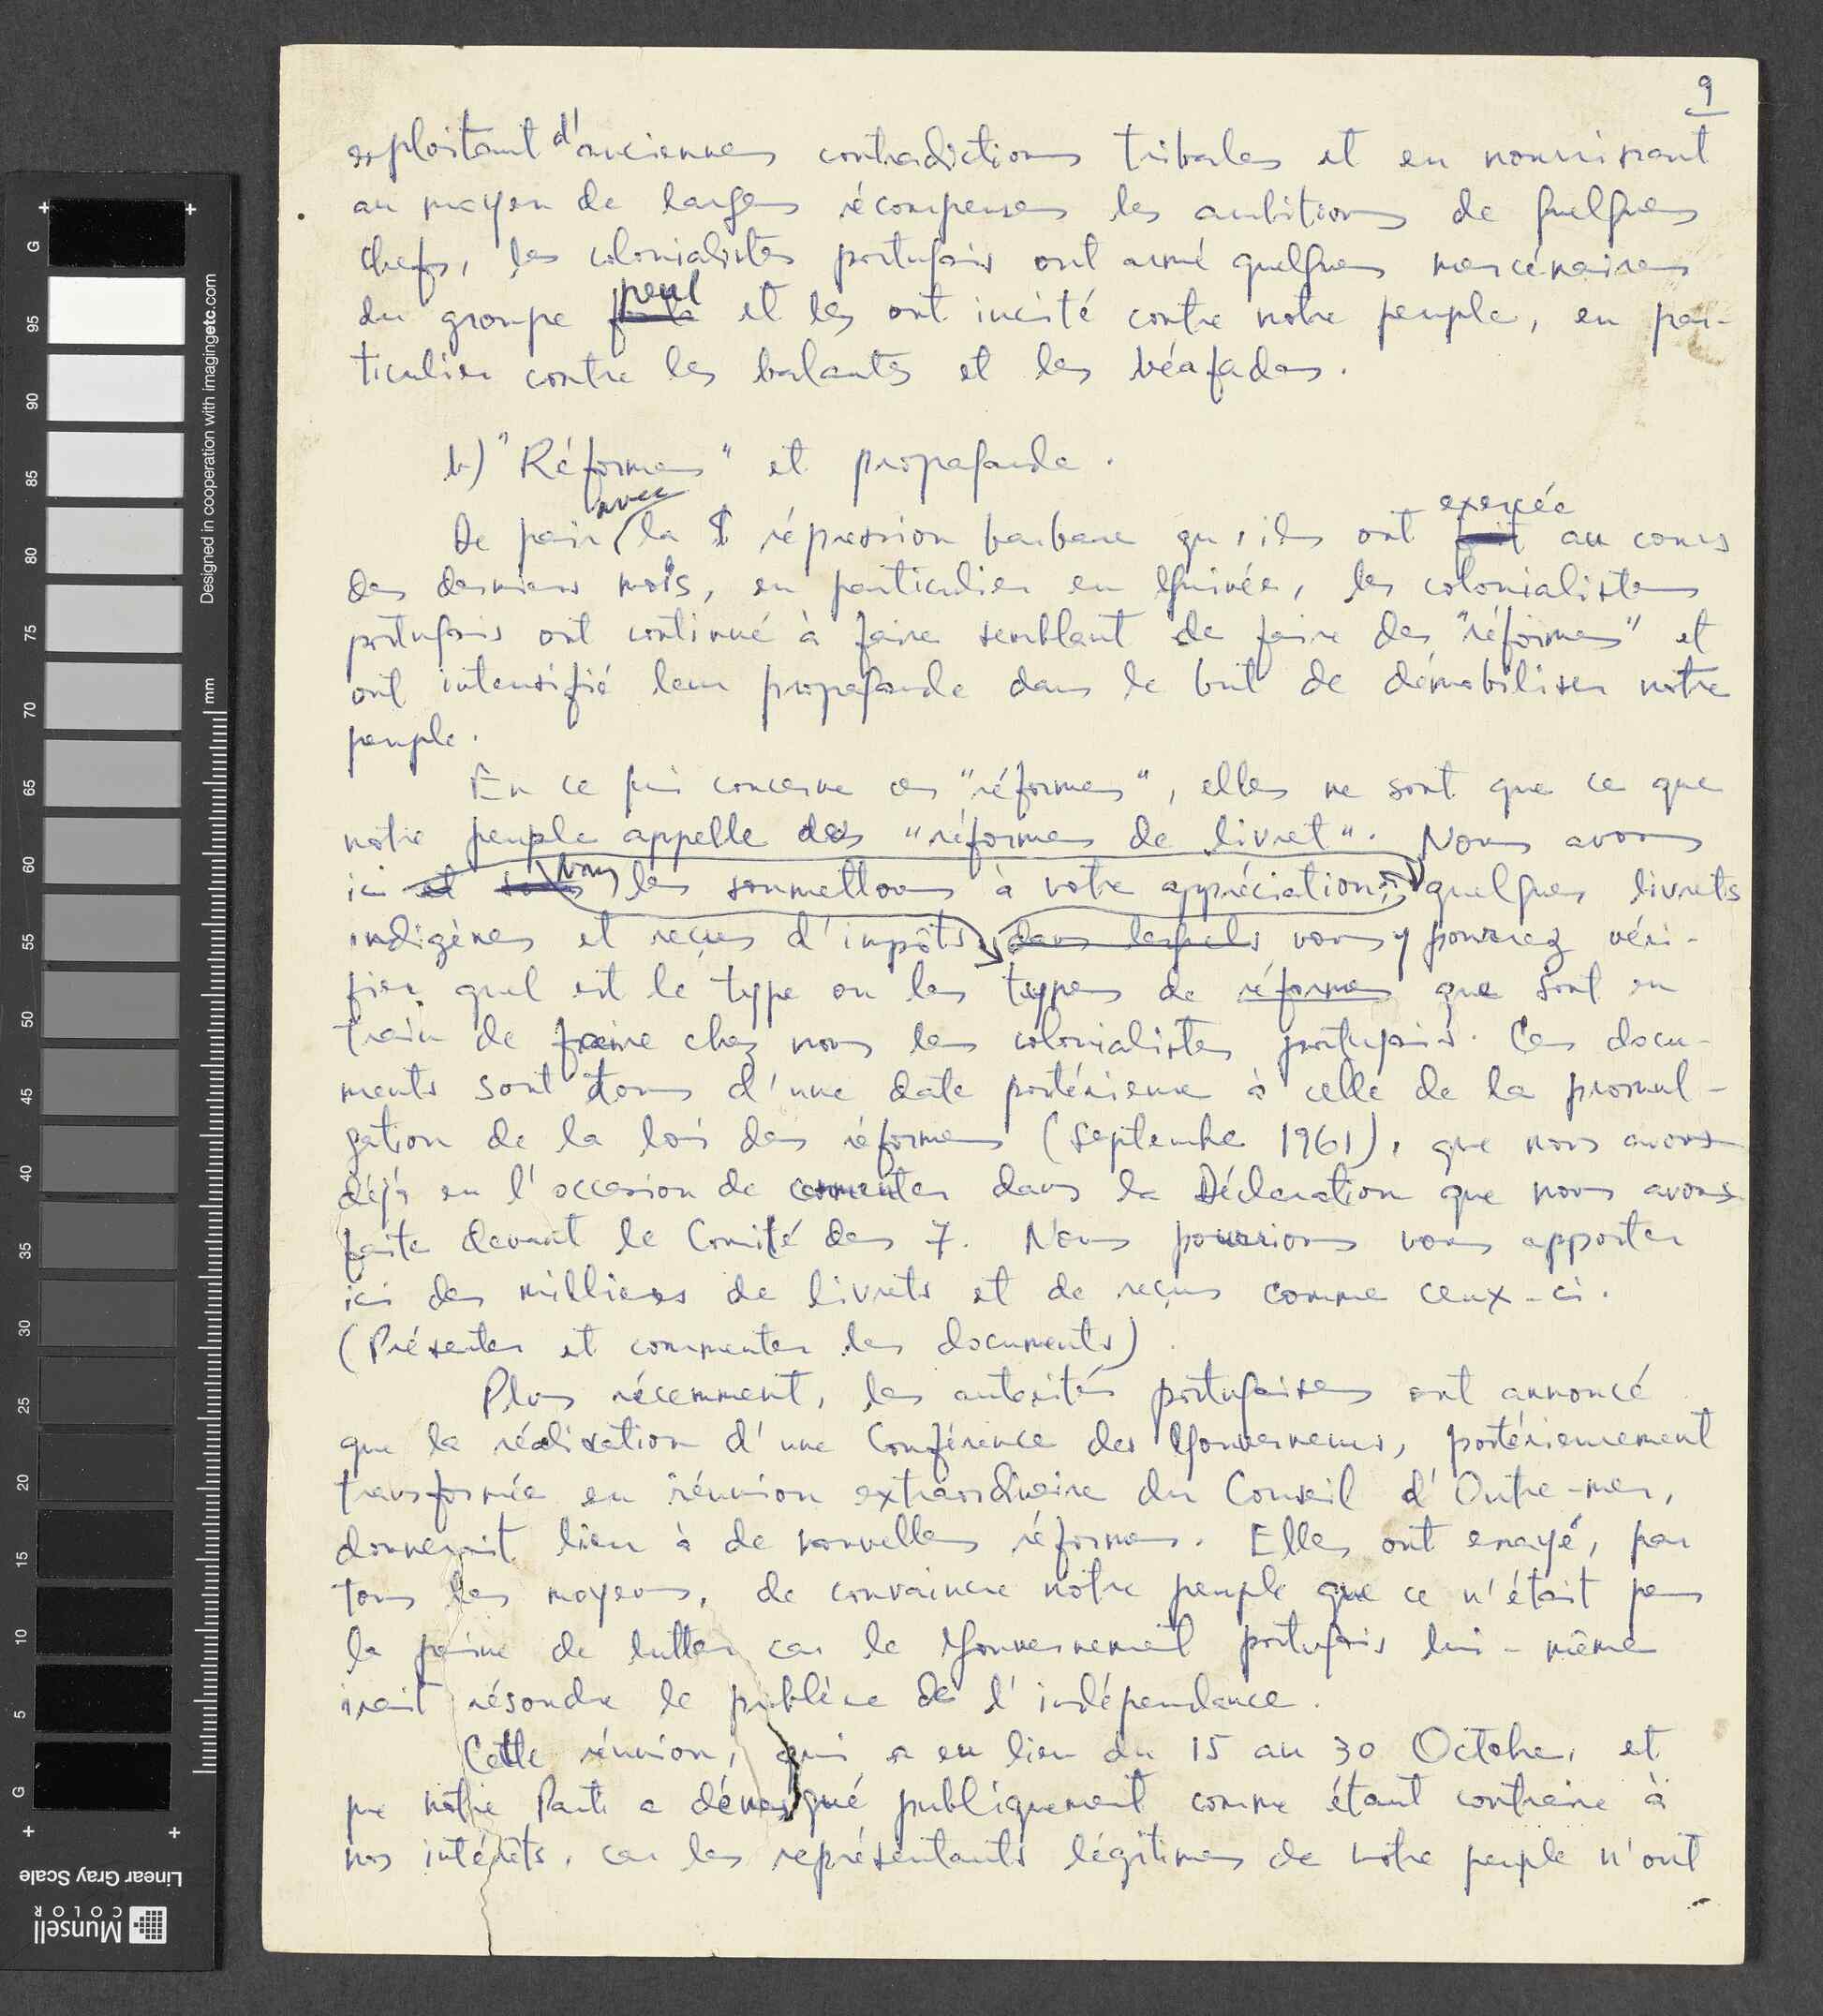 9
exploitant d'anciennes contradictions tribales et en nourrissant
au moyen de larges récompenses les ambitions de quelques
chefs, les colonialistes portugais ont armé quelques mercénaires
du groupe peul et les ont incité contre notre peuple, en par-
ticulier contre les balantes et les béafadas.
b) "Réformes" et propagande.
De pair avec la répression barbare qu'ils ont exercée au cours
des derniers mois, en particulier en Guinée, les colonialistes
portugais ont continué à faire semblant de faire des "réformes" et
ont intensifié leur propagande dans le but de démobiliser notre
peuple.
En ce qui concerne ces "réformes", elles ne sont que ce que
notre peuple appelle des "réformes de livret". Nous avons
ici et vous les soumettons à votre appréciation, quelques livrets
indigènes et reçus d'impôts, dans lesquels vous y pourrez véri-
fier quel est le type ou les types de réformes que sont en
train de faire chez nous les colonialistes portugais. Ces docu-
ments sont tous d'une date postérieure à celle de la promul-
gation de la loi des réformes (Septembre 1961), que nous avons
déjà eu l'occasion de commenter dans la Déclaration que nous avons
faite devant le Comité des 7. Nous pourrions vous apporter
ici des milliers de livrets et de reçus comme ceux-ci.
(Présenter et commenter les documents)
Plus récemment, les autorités portugaises ont annoncé
que la réalisation d'une Conférence des Gouverneurs, postérieurement
transformée en réunion extraordinaire du Conseil d'Outre-mer,
donnerait lieu à de nouvelles réformes. Elles ont essayé, par
tous les moyens, de convaincre notre peuple que ce n'était pas
la peine de lutter car le Gouvernement portugais lui-même
irait résoudre le problème de l'indépendance.
Cette réunion, qui a eu lieu du 15 au 30 Octobre, et
que notre Parti a démasqué publiquement comme étant contraire à
nos intérêts, car les représentants légitimes de notre peuple n'ont
G
95
90
85
80
75
70
65
60
55
50
45
40
35
30
25
20
15
10
5
G
mm
Designed in cooperation with imagingetc.com
Linear Gray Scale
Munsell
COLOR